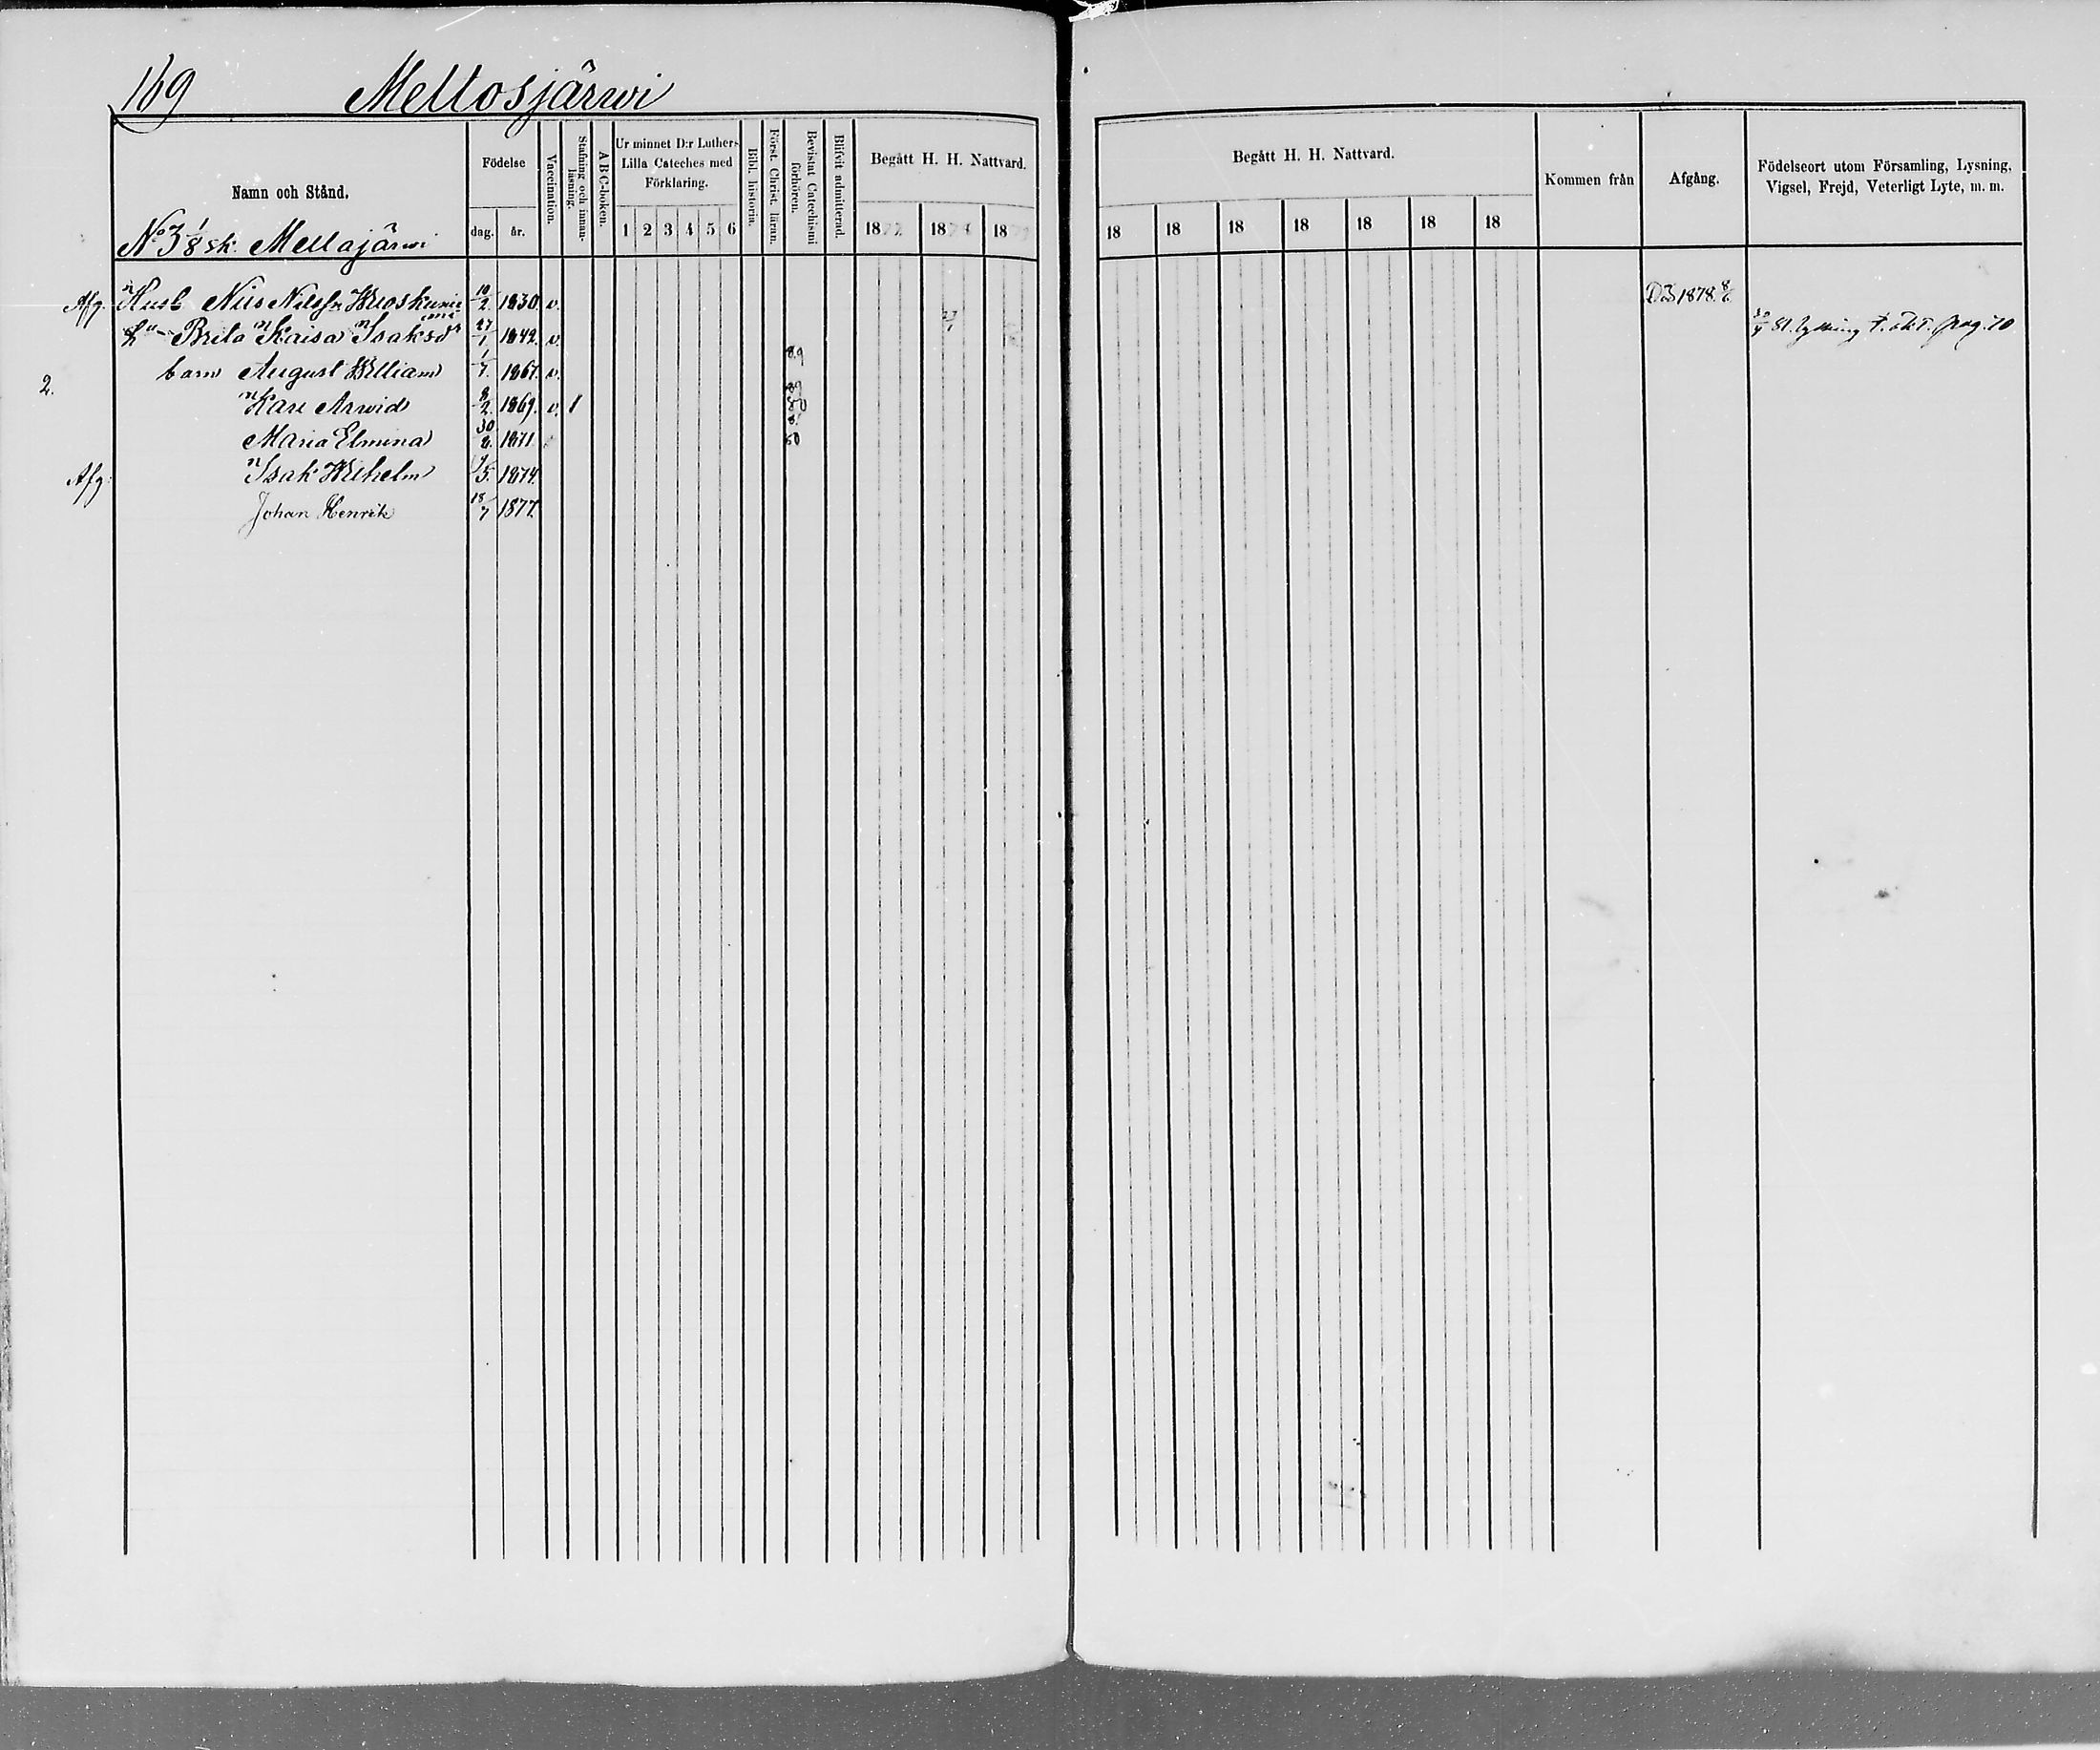 169 Mellosjärwi
Namn och Stånd.
No 3 1/8 sk: Mellajärwi
Födelse
dag. år.
Vaccination.
Stafning och innan-läsning.
ABC-boken.
Ur minnet D:r Luthers
Lilla Cateches med
Förklaring.
1 2 3 4 5 6
Bibl. historia.
Först. Christ. läran.
Bevistat Catechismi förhören.
Blifvit admitterad.
Begått H. H. Nattvard.
1877 1878 1879
Begått H. H. Nattvard.
18 18 18 18 18 18 18
Kommen från
Afgång.
Födelseort utom Församling, Lysning,
Vigsel, Frejd, Veterligt Lyte, m. m.
Afg. Husb Nils Nilsson 10/2. 1830. v. 1878 8/6
h– Brita Kaisa Isaksdr 27/1 1842. v. 27/1 81. lysning pag. 70
barn August William 1/7. 1867. v. 89
2. Karl Arwid 8/2. 1869. v. 1 89 80
Maria Elmina 30/8. 1871 80
Afg: Isak Wilhelm 9/5. 1874.
Johan Henrik 18/7 1877.